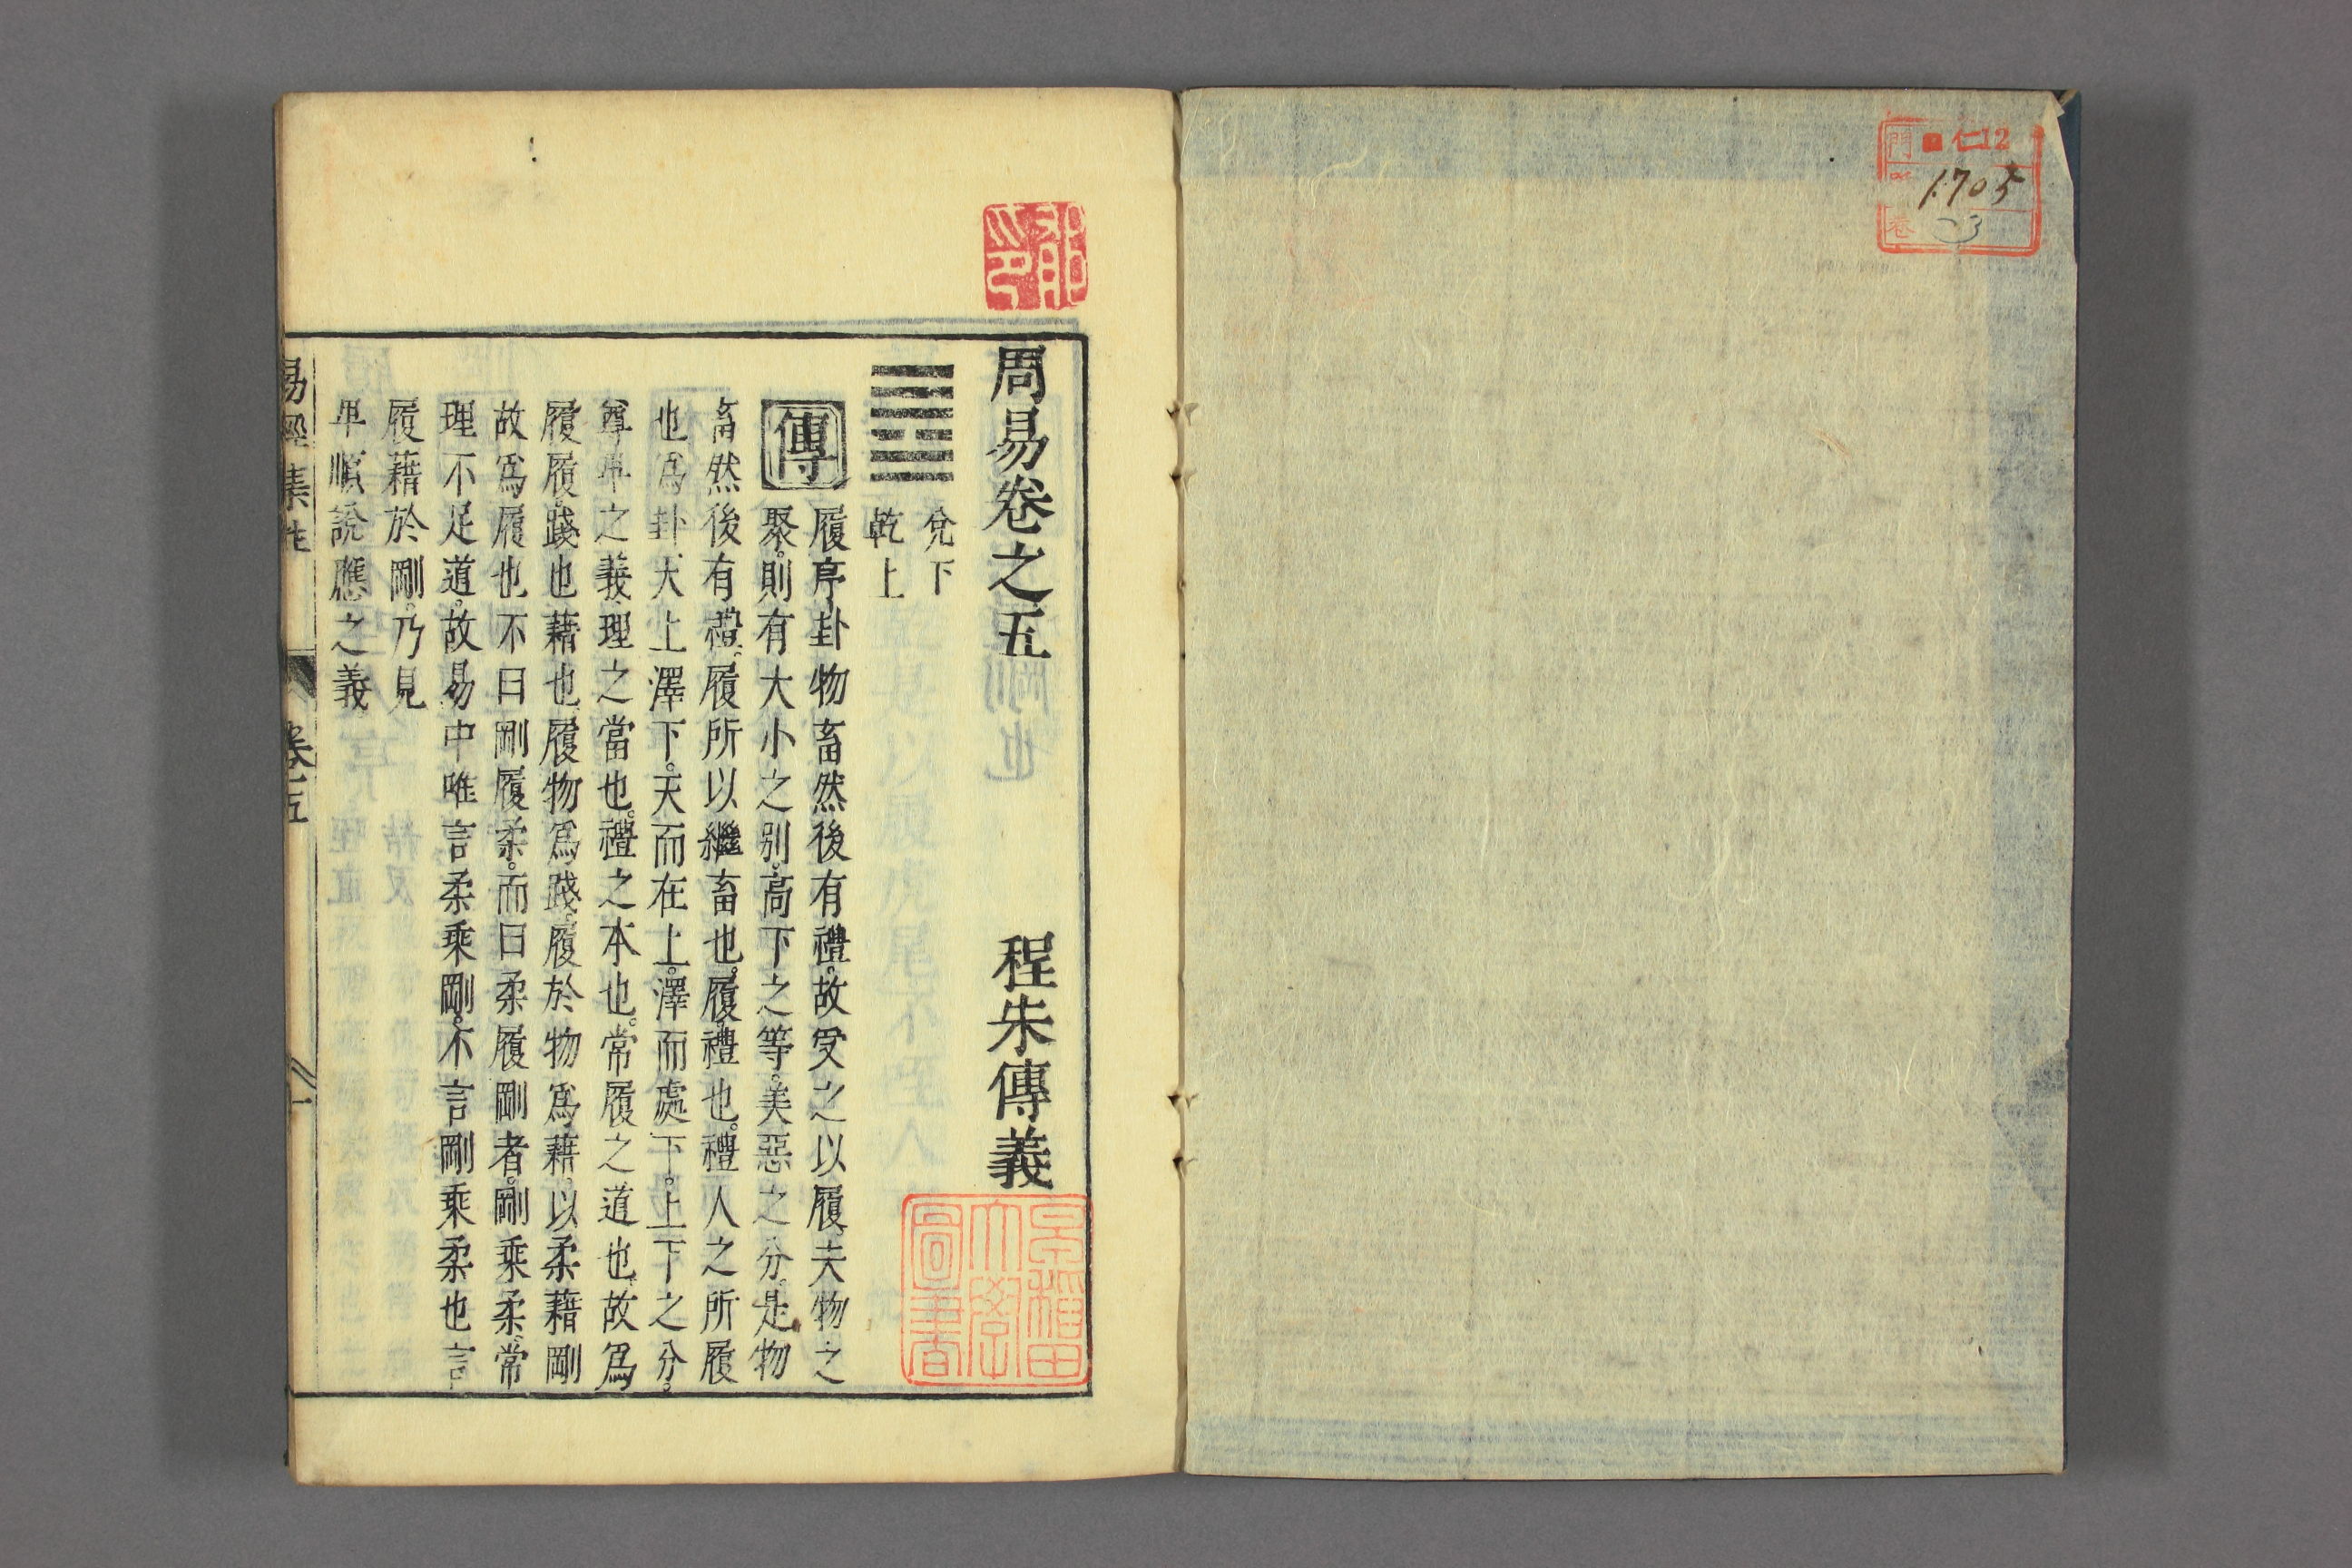 門
仁12
1705
卷
3
周易卷之五
程朱傳義
兌下
乾上
傳
履序卦物畜然後有禮。故受之以履。夫物之
聚。則有大小之別。高下之等。美惡之分。是物
畜然後有禮。履所以繼畜也。履禮也。禮人之所履
也爲卦、天上澤下。天而在上。澤而處下。上下之分。
尊卑之義、理之當也。禮之本也。常履之道也。故爲
履。履。踐也藉也。履物爲踐。履於物爲藉。以柔藉剛
故爲履也不曰剛履柔。而曰柔履剛者。剛乘柔、常
理不足道。故易中唯言柔乘剛。不言剛乘柔也言
履藉於剛。乃見
卑順說應之義
易經集註
卷五
一
早稻田
大學
圖書